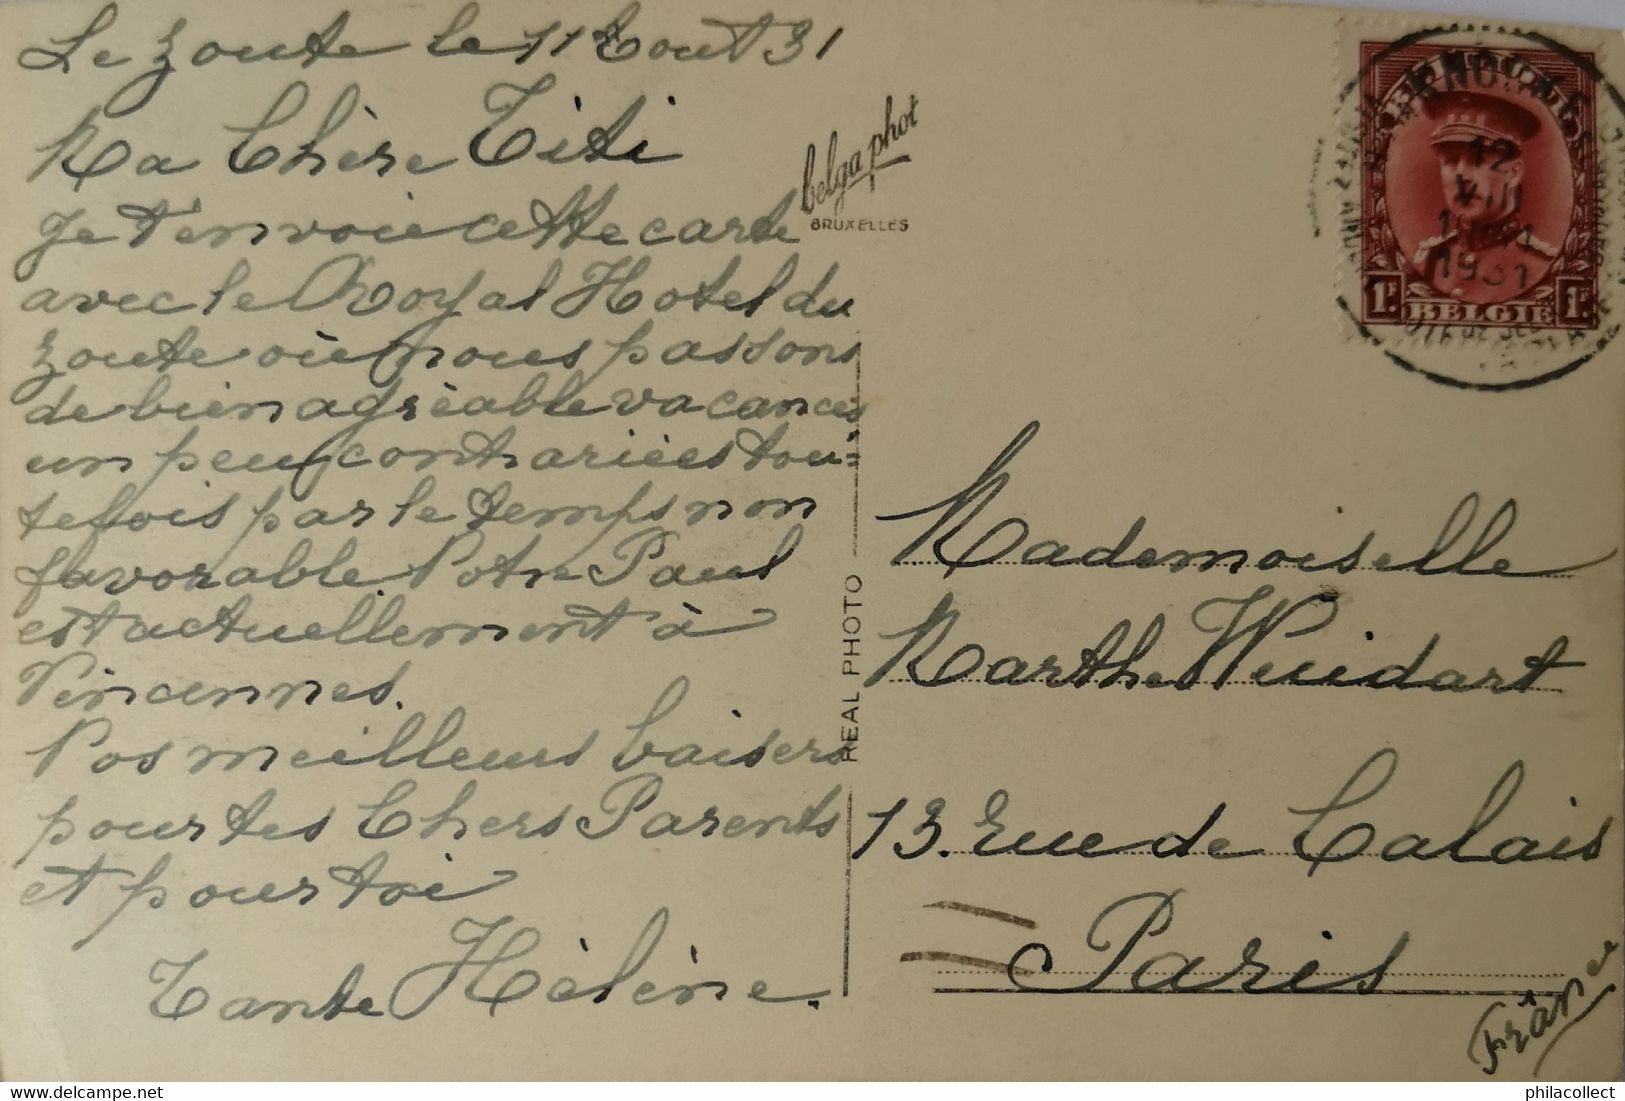 Le Zoute le 11 Aout 31
Ma Chère Titi
Je t'envoie cette carte
avec le Royal Hotel du
Zoute où nous passons
de bien agréable vacances
un peu contrariées tou=
tefois par le temps non
favorable Notre Paul
est actuellement à
Vincennes.
Nos meilleurs baisers
pour tes Chers Parents
et pour toi
Tante Hélène.
belga phot
BRUXELLES
REAL PHOTO
12
VIII
1931
1F BELGIE 1F
Mademoiselle
Marthe Wuidart
13. rue de Calais
Paris
philacollect